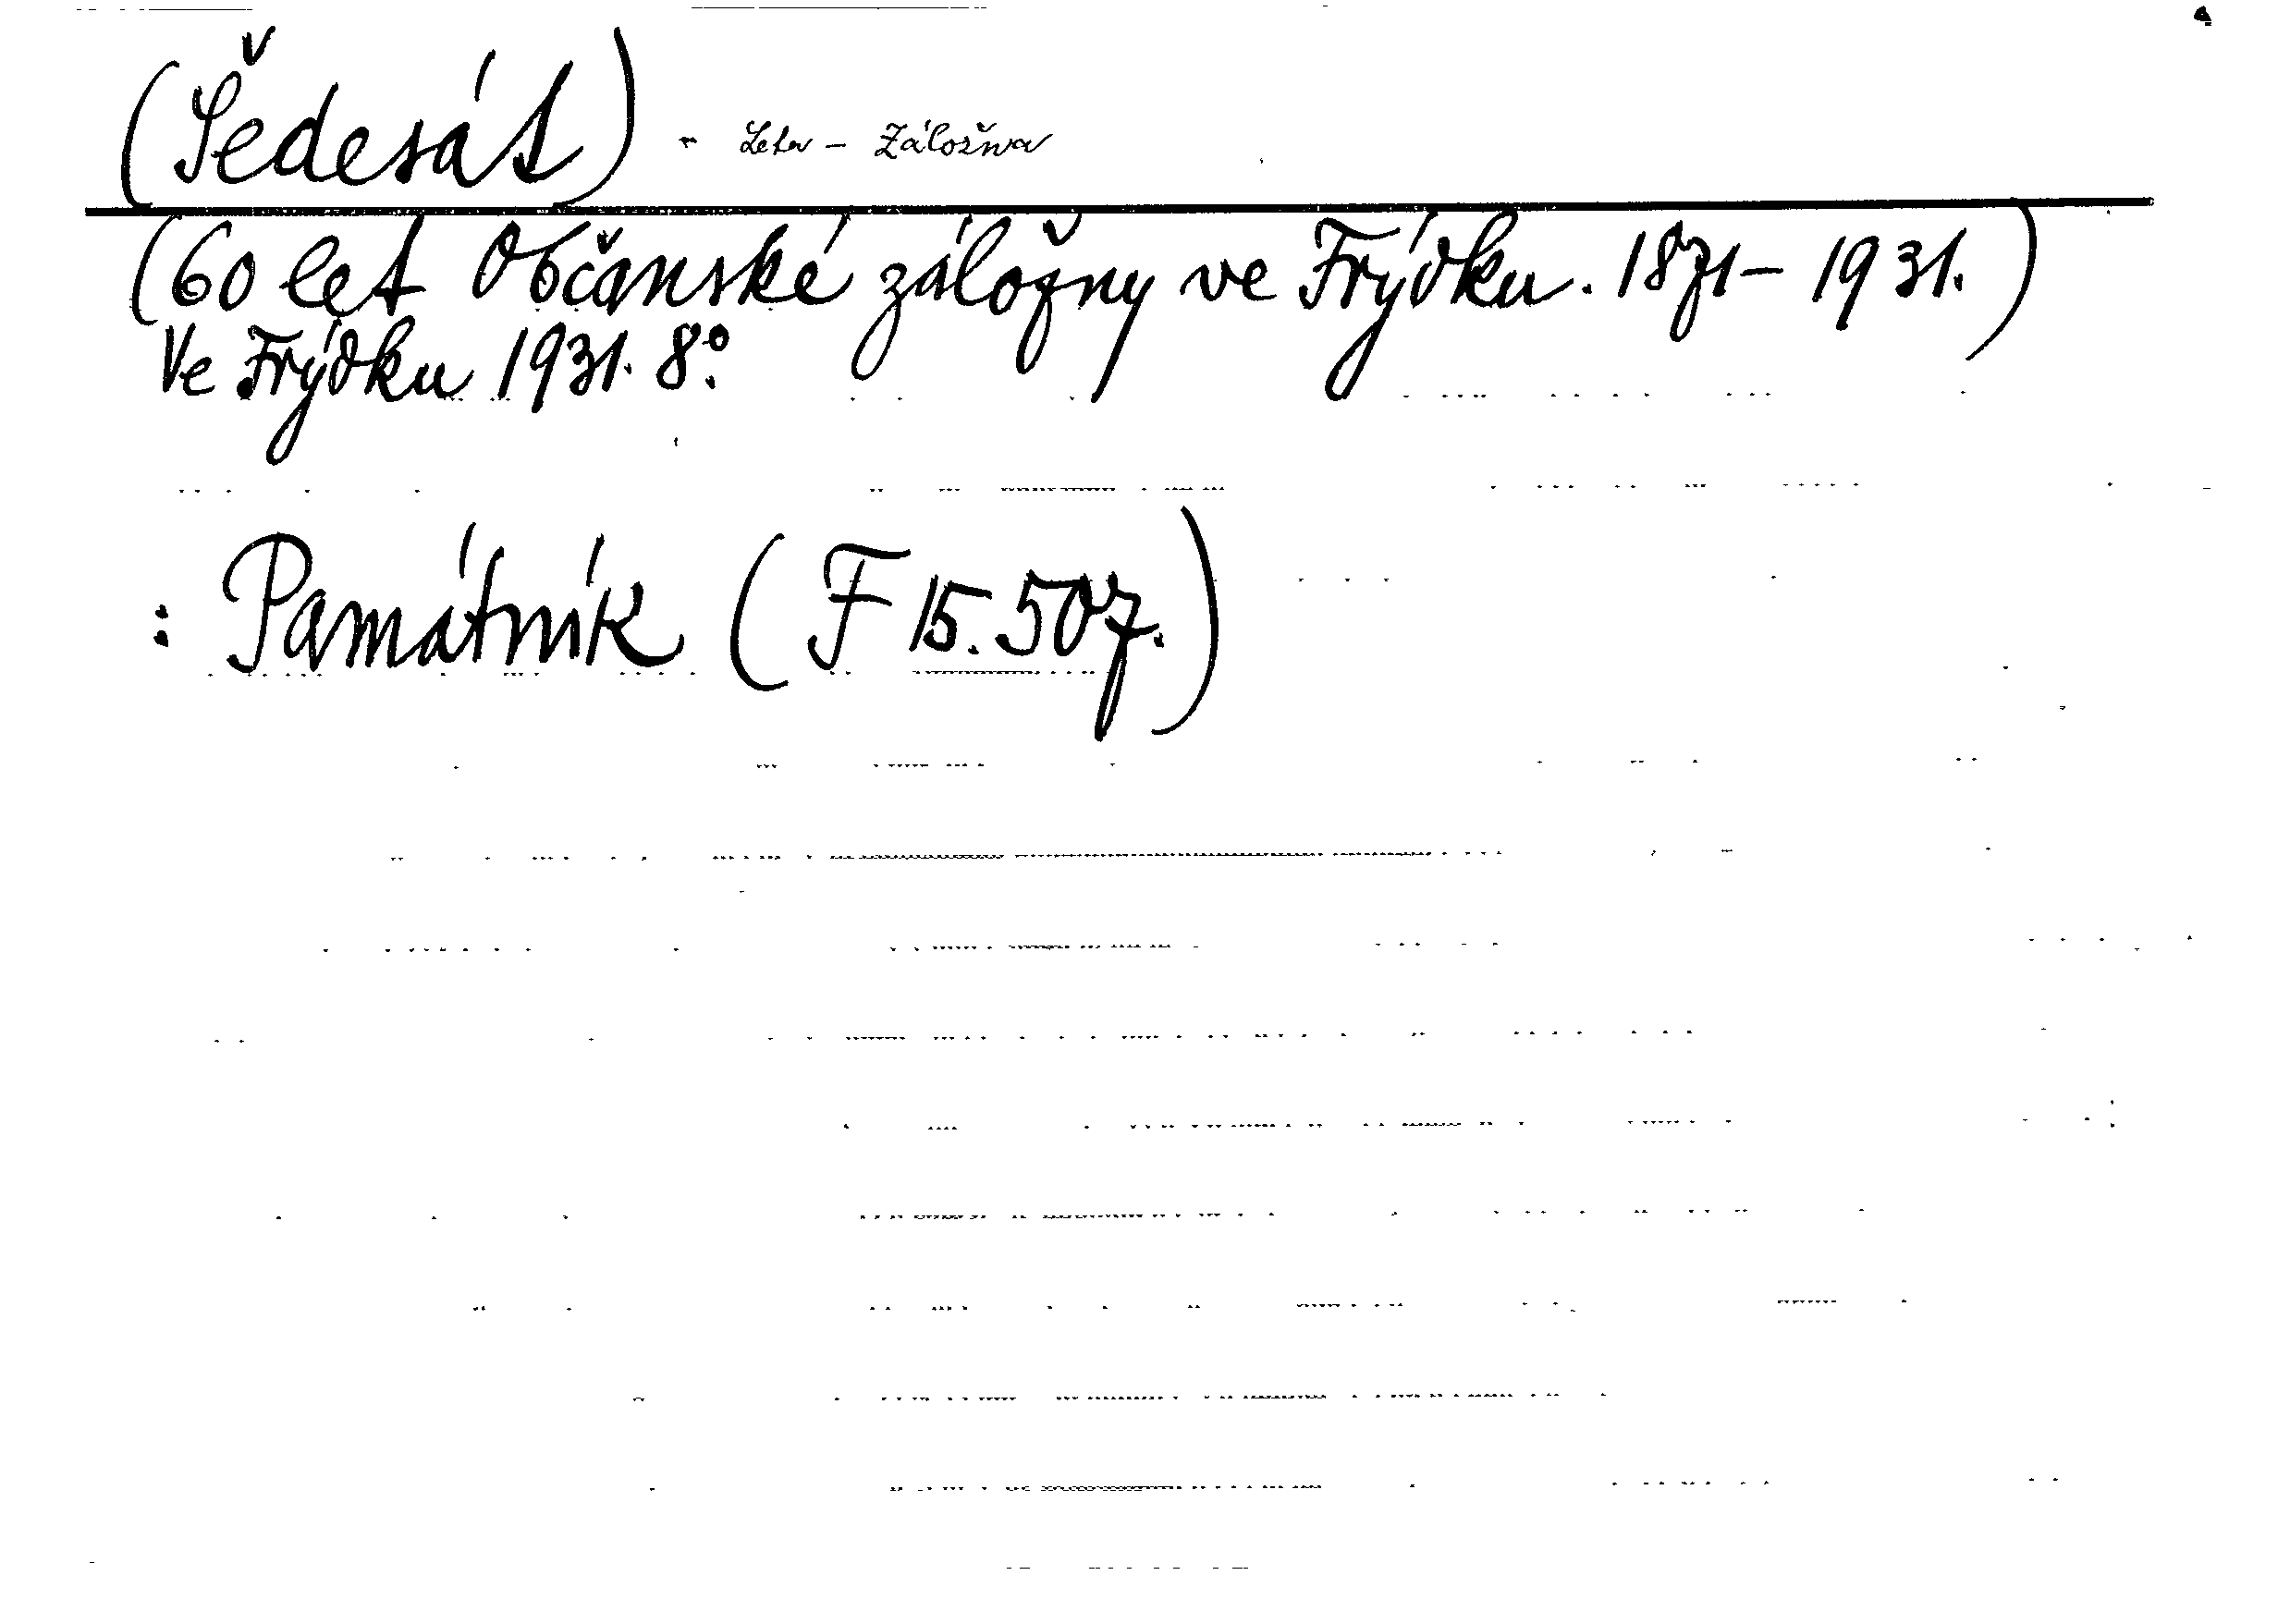 (Šedesát) - Leta - Záložna
(60 let Občanské záložny ve Frýdku. 1871 - 1931.)
Ve Frýdku 1931. 8°.
: Památník (F 15.507.)